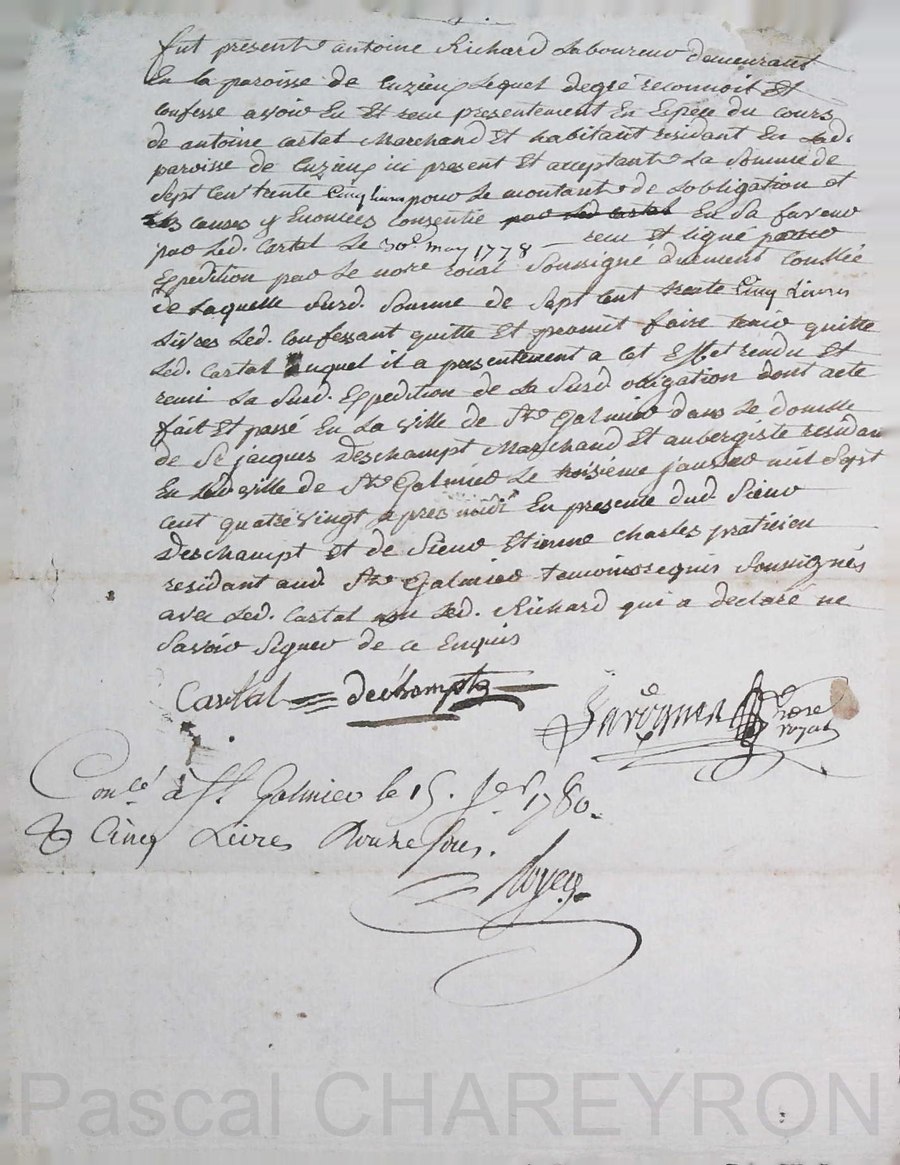 fut present antoine Richard Laboureur demeurant
En la paroisse de Cuzieu Lequel degré reconnoit Et
confesse avoir Eu Et recu presentement En Espece du cours
de antoine Cartal Marchand Et habitant residant En Lad.
paroisse de Cuzieu ici present Et acceptant La Somme de
Sept Cent trente Cinq livres pour Le montant de Lobligation et
causes y Enoncées Consentie par Led Cartal En Sa faveur
par Led. Cartal Le 30e. may 1778 recu Et signé
Expedition par Le nore roial Soussigné duement Conllée
de Laquelle surd. Somme de Sept Cent trente Cinq Livres
Livres Led. Confessant quitte Et promit faire tenir quitte
Led. Cartal auquel il a presentement a Cet Effet rendu Et
remi La Surd. Expedition de La Surd obligation dont acte
fait Et passé En La Ville de St. Galmier dans Le domille
de Sr. jacques Deschampt Marchand Et aubergiste residan
En Lad Ville de St. Galmier Le troisième janvier mil Sept
cent quatre vingt apres midi En presence dud. Sieur
Deschampt et de Sieur Etienne charles praticien
residant aud St. Galmier temoins requis Soussignés
avec Led. Cartal non Led. Richard qui a declaré ne
Savoir Signer de ce Enquis
Cartal dechampt
nore
royal
Conlé à St. Galmier le 15. Jer 1780.
Cinq Livres Douze sous.
Pascal CHAREYRON